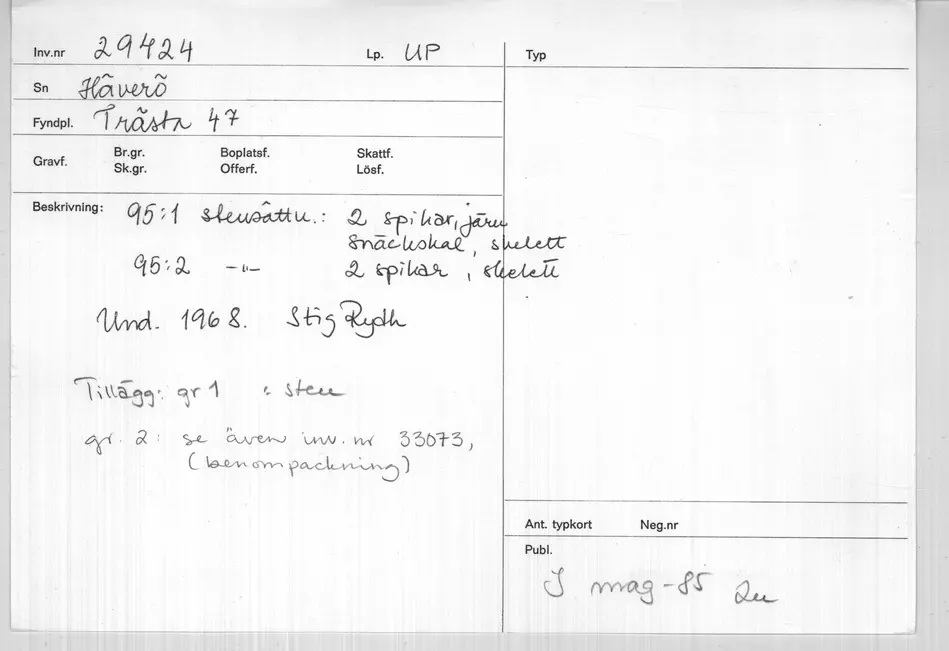 Inv.nr 29424 Lp. UP Typ
Sn Häverö
Fyndpl. Trästa 47
Gravf. Br.gr. Boplatsf. Skattf.
Sk.gr. Offerf. Lösf.
Beskrivning: 95:1 stensättn.: 2 spikar, järn
snäckskal, skelett
95:2 -"- 2 spikar, skelett
Und. 1968. Stig Rydh
Tillägg: gr 1 : sten
gr. 2: se även inv. nr 33073,
(benompackning)
Ant. typkort Neg.nr
Publ.
I mag-85